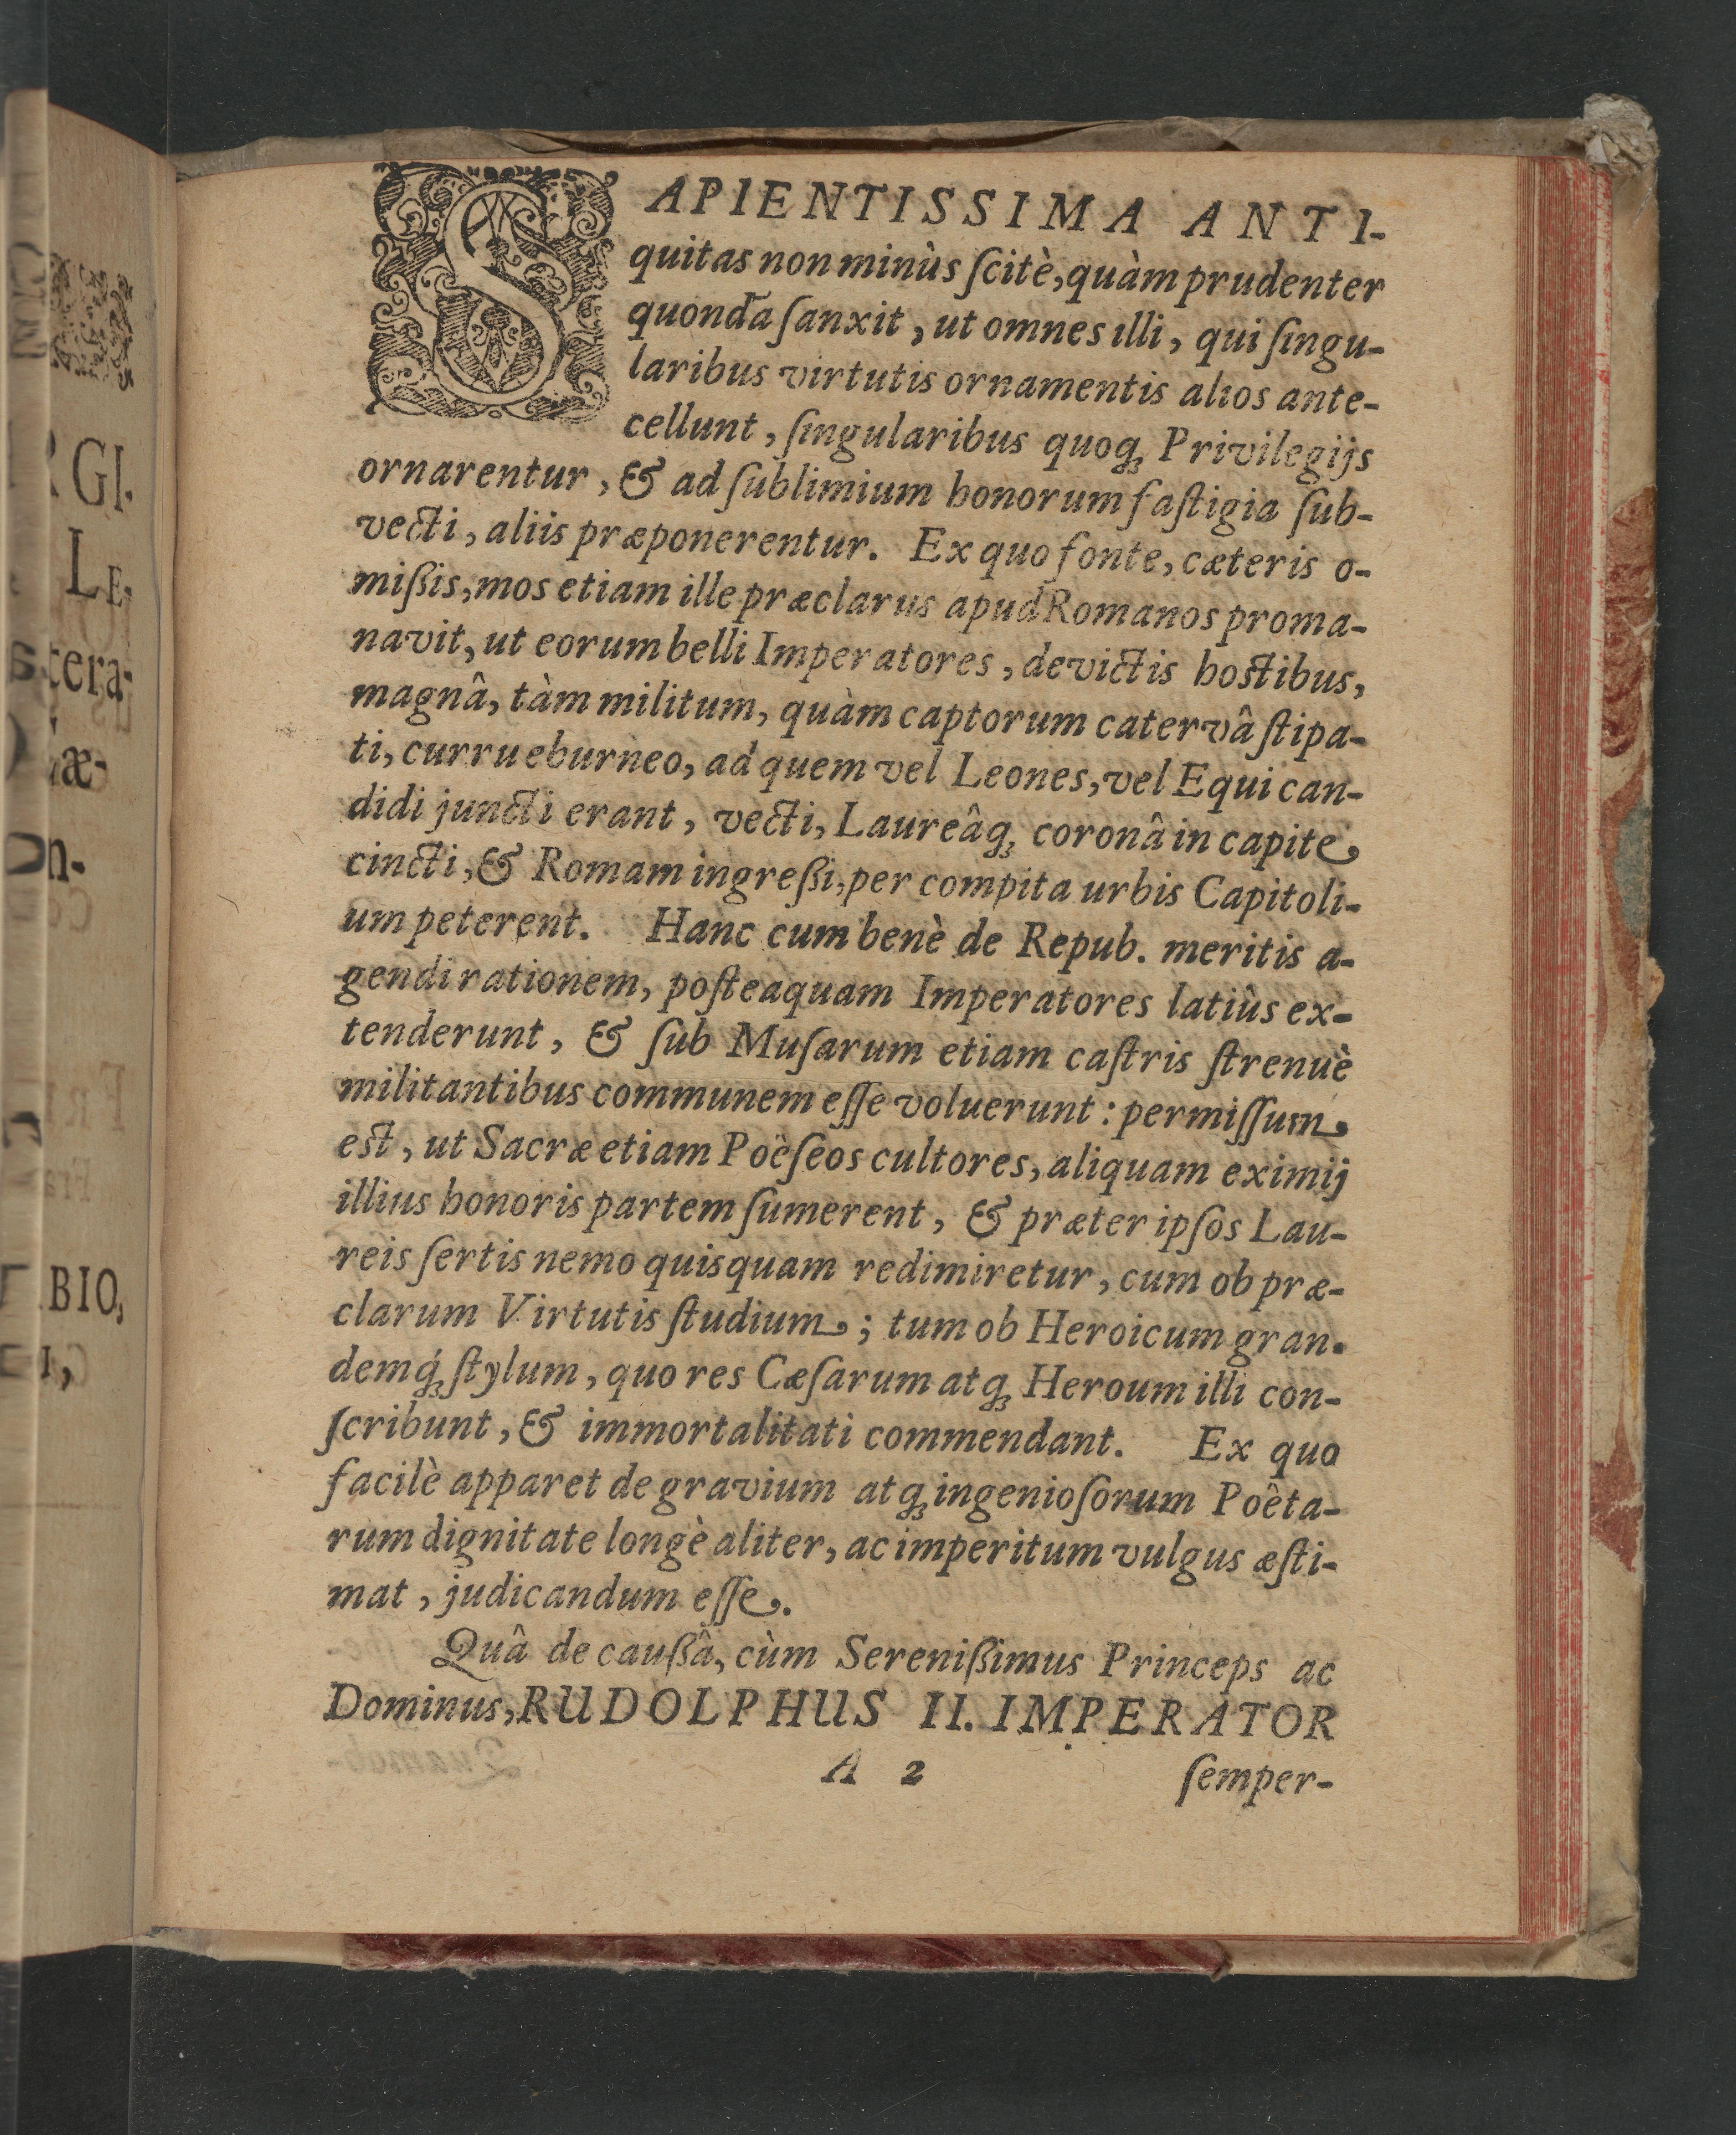 SAPIENTISSIMA ANTI-
quitas non minùs ſcitè, quàm prudenter
quondā ſanxit, ut omnes illi, qui ſingu-
laribus virtutis ornamentis alios ante-
cellunt, ſingularibus quoq; Privilegijs
ornarentur, & ad ſublimium honorum faſtigia ſub-
vecti, aliis præponerentur. Ex quo fonte, cæteris o-
mißis, mos etiam ille præclarus apud Romanos proma-
navit, ut eorum belli Imperatores, devictis hostibus,
magnâ, tàm militum, quàm captorum catervâ ſtipa-
ti, curru eburneo, ad quem vel Leones, vel Equi can-
didi juncti erant, vecti, Laureâq; coronâ in capite
cincti, & Romam ingreßi, per compita urbis Capitoli-
um peterent. Hanc cum benè de Repub. meritis a-
gendi rationem, poſteaquam Imperatores latiùs ex-
tenderunt, & ſub Muſarum etiam caſtris ſtrenuè
militantibus communem eſſe voluerunt: permiſſum
est, ut Sacræ etiam Poëſeos cultores, aliquam eximij
illius honoris partem ſumerent, & præter ipſos Lau-
reis ſertis nemo quisquam redimiretur, cum ob præ-
clarum Virtutis ſtudium; tum ob Heroicum gran-
demq́; ſtylum, quo res Cæſarum atq; Heroum illi con-
ſcribunt, & immortalitati commendant. Ex quo
facilè apparet de gravium atq; ingenioſorum Poêta-
rum dignitate longè aliter, ac imperitum vulgus æſti-
mat, judicandum eſſe.
Quâ de caußâ, cùm Serenißimus Princeps ac
Dominus, RUDOLPHUS II. IMPERATOR
A 2 ſemper-
RGI.
LE-
tera-
æ-
n-
BIO,
I,